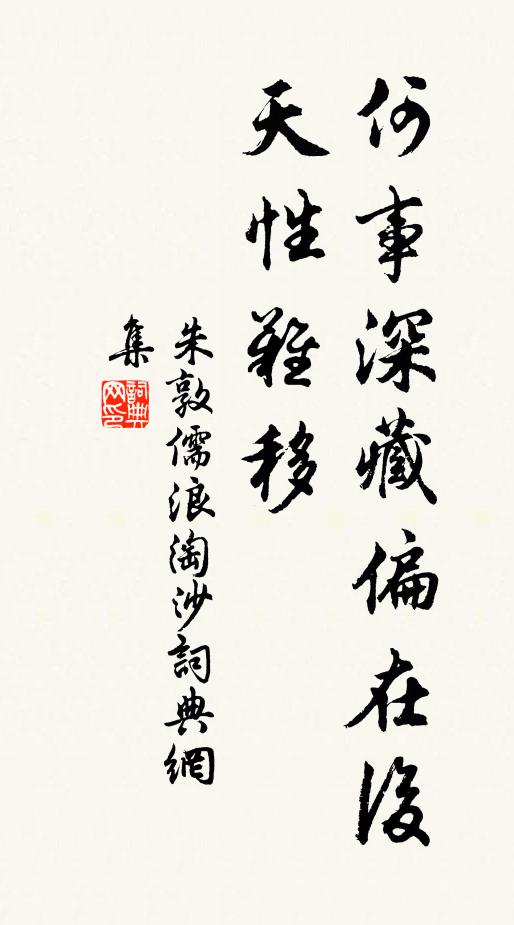 何事深藏偏在後
天性難移
朱敦儒浪淘沙詞典網
集
詞典
网印